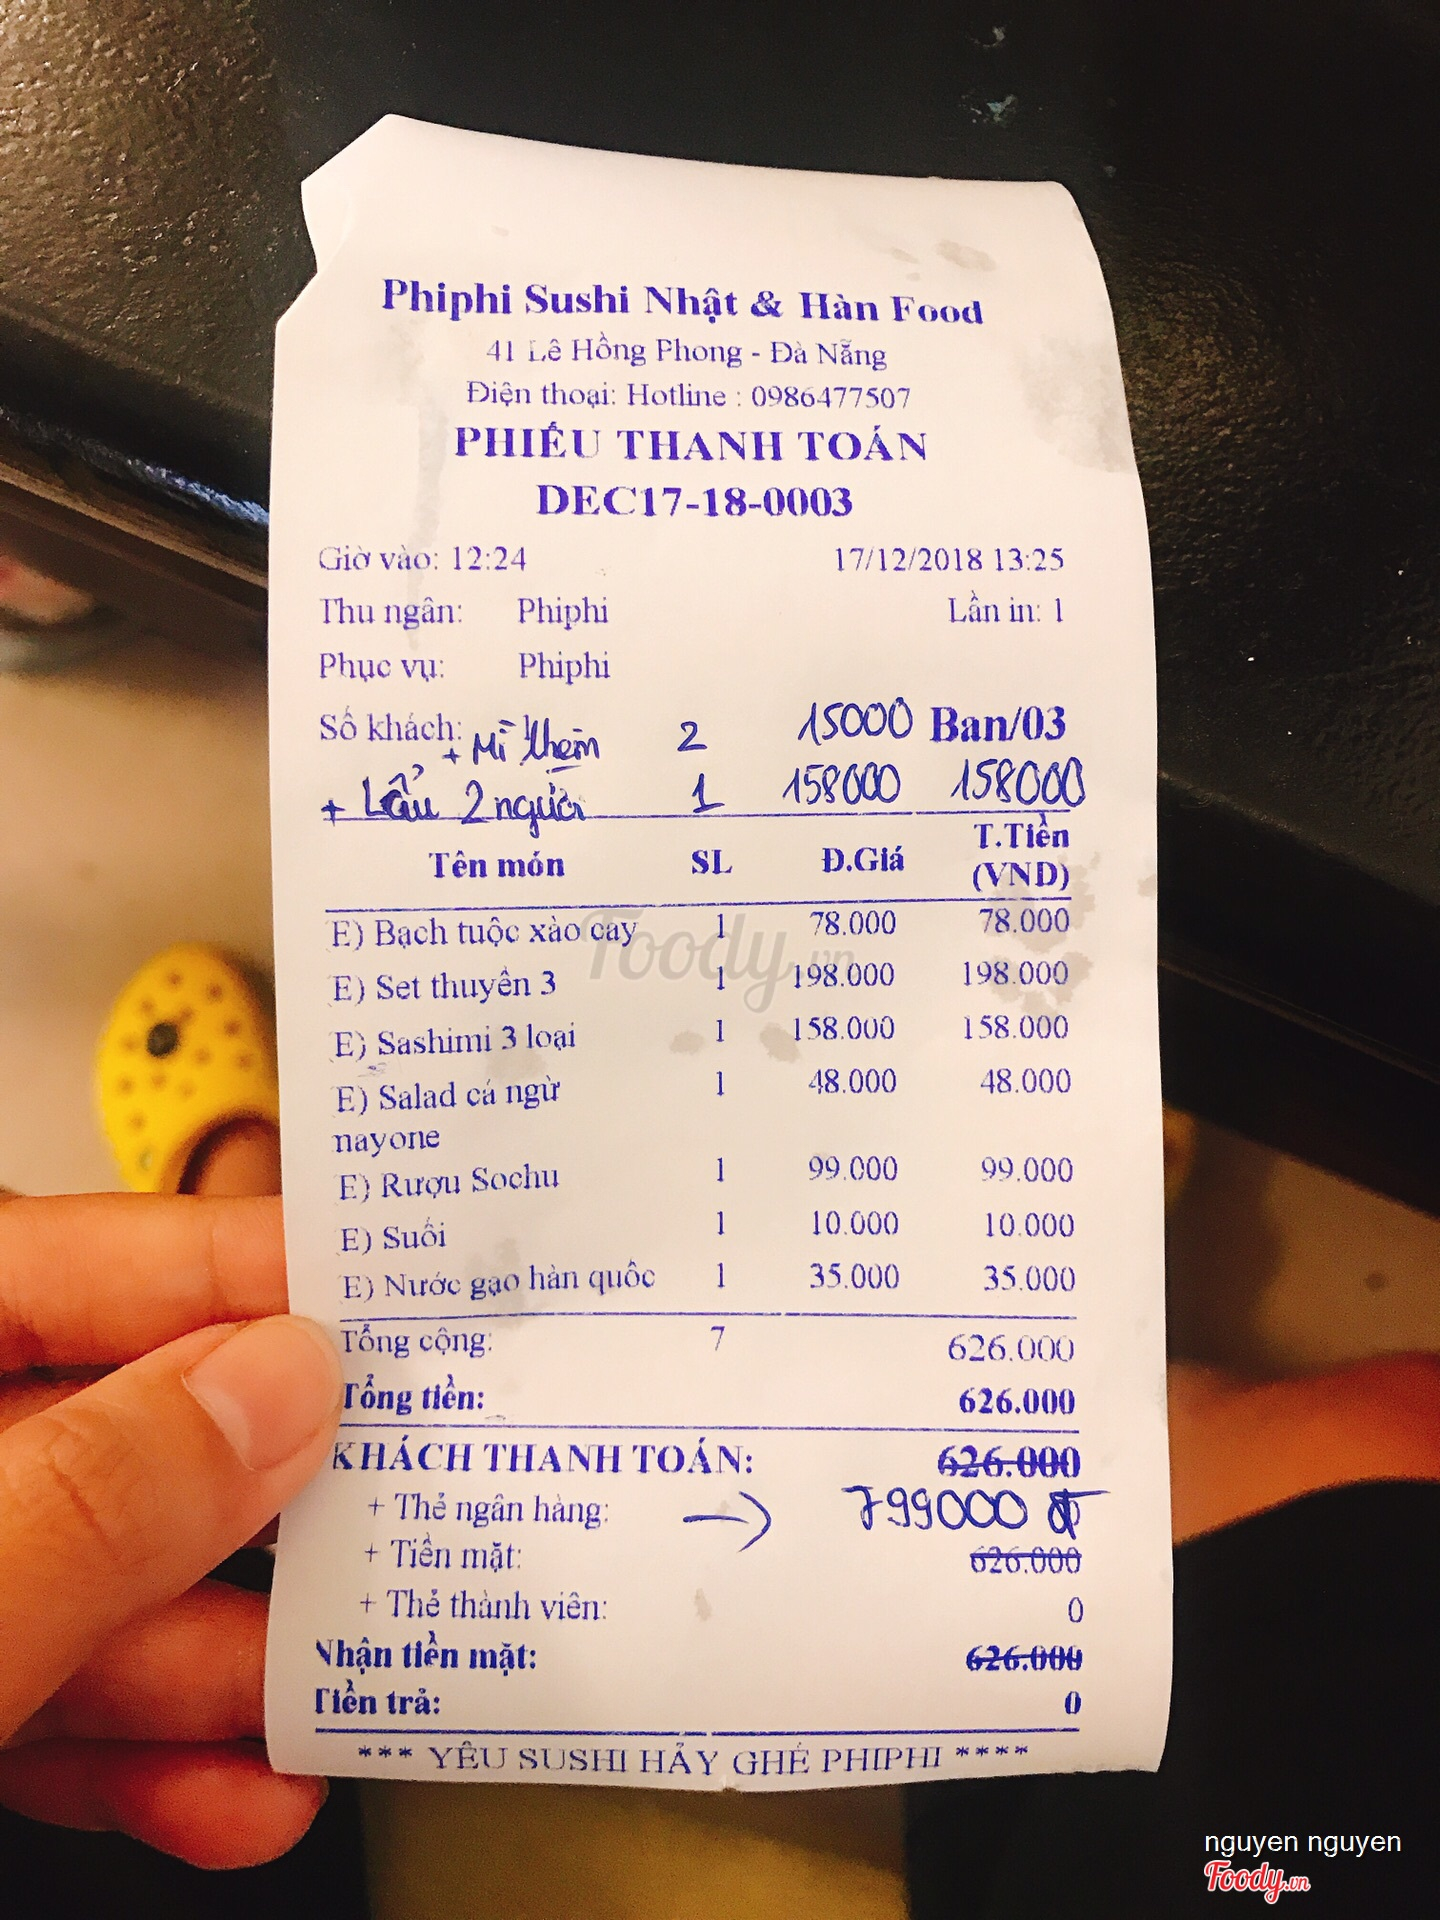 Phiphi Sushi Nhật & Hàn Food
41 Lê Hồng Phong - Đà Nẵng
Điện thoại: Hotline : 0986477507
PHIẾU THANH TOÁN
DEC17-18-0003
Giờ vào: 12:24 17/12/2018 13:25
Thu ngân: Phiphi Lần in: 1
Phục vụ: Phiphi
Số khách: Ban/03
+ Mì thêm 2 15000
+ Lẩu 2 người 1 158000 158000
Tên món SL Đ.Giá T.Tiền (VND)
E) Bạch tuộc xào cay 1 78.000 78.000
E) Set thuyền 3 1 198.000 198.000
E) Sashimi 3 loại 1 158.000 158.000
E) Salad cá ngừ 1 48.000 48.000
nayone
E) Rượu Sochu 1 99.000 99.000
E) Suối 1 10.000 10.000
E) Nước gạo hàn quốc 1 35.000 35.000
Tổng cộng: 7 626.000
Tổng tiền: 626.000
KHÁCH THANH TOÁN: 626.000
+ Thẻ ngân hàng: → 799000 đ
+ Tiền mặt: 626.000
+ Thẻ thành viên: 0
Nhận tiền mặt: 626.000
Tiền trả: 0
*** YÊU SUSHI HẢY GHÉ PHIPHI ****
Foody.vn
nguyen nguyen
Foody.vn